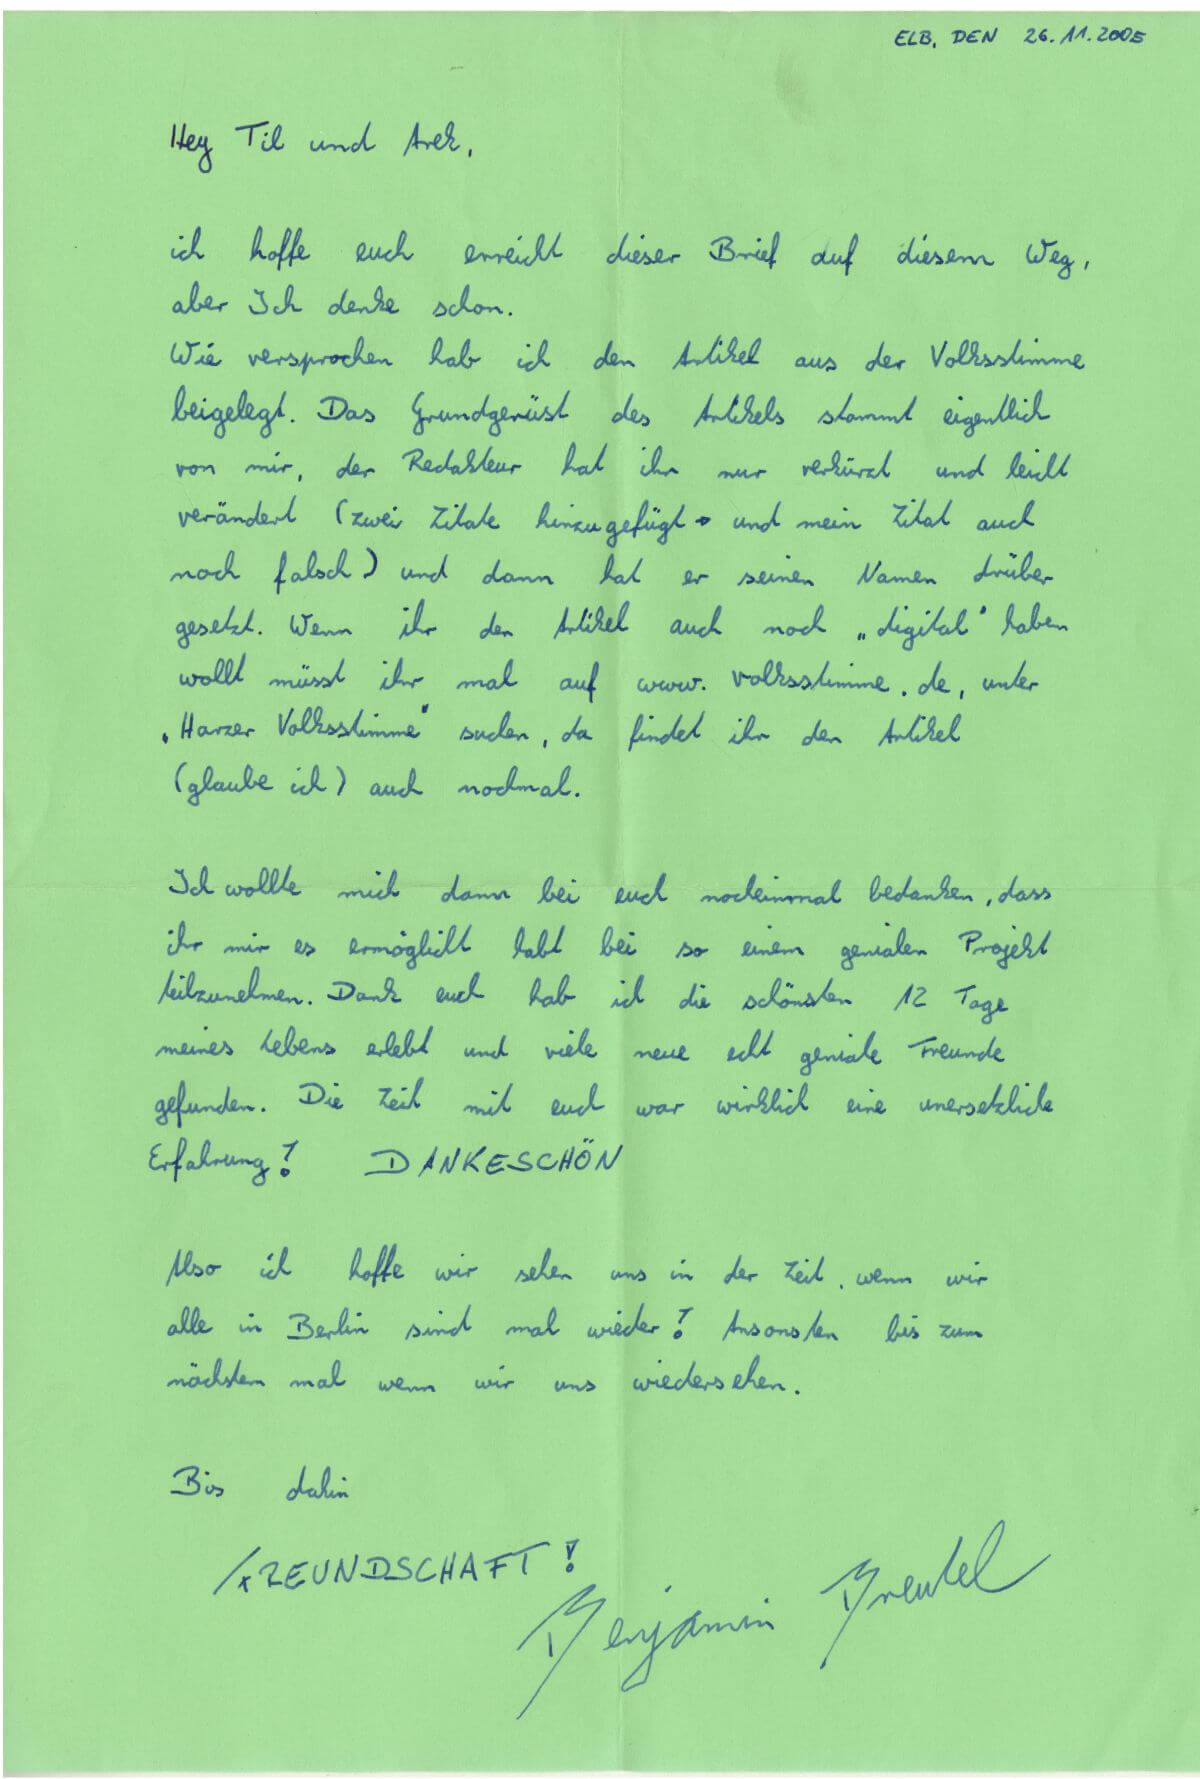 ELB, DEN 26.11.2005
Hey Til und Arek,
ich hoffe euch erreicht dieser Brief auf diesem Weg,
aber Ich denke schon.
Wie versprochen hab ich den Artikel aus der Volksstimme
beigelegt. Das Grundgerüst des Artikels stammt eigentlich
von mir, der Redakteur hat ihn nur verkürzt und leicht
verändert (zwei Zitate hinzugefügt → und mein Zitat auch
noch falsch) und dann hat er seinen Namen drüber
gesetzt. Wenn ihr den Artikel auch noch „digital" haben
wollt müsst ihr mal auf www.volksstimme.de, unter
„Harzer Volksstimme" suchen, da findet ihr den Artikel
(glaube ich) auch nochmal.
Ich wollte mich dann bei euch nocheinmal bedanken, dass
ihr mir es ermöglicht habt bei so einem genialen Projekt
teilzunehmen. Dank euch hab ich die schönsten 12 Tage
meines Lebens erlebt und viele neue echt geniale Freunde
gefunden. Die Zeit mit euch war wirklich eine unersetzliche
Erfahrung! DANKESCHÖN
Also ich hoffe wir sehen uns in der Zeit, wenn wir
alle in Berlin sind mal wieder! Ansonsten bis zum
nächsten mal wenn wir uns wiedersehen.
Bis dahin
FREUNDSCHAFT!
Benjamin